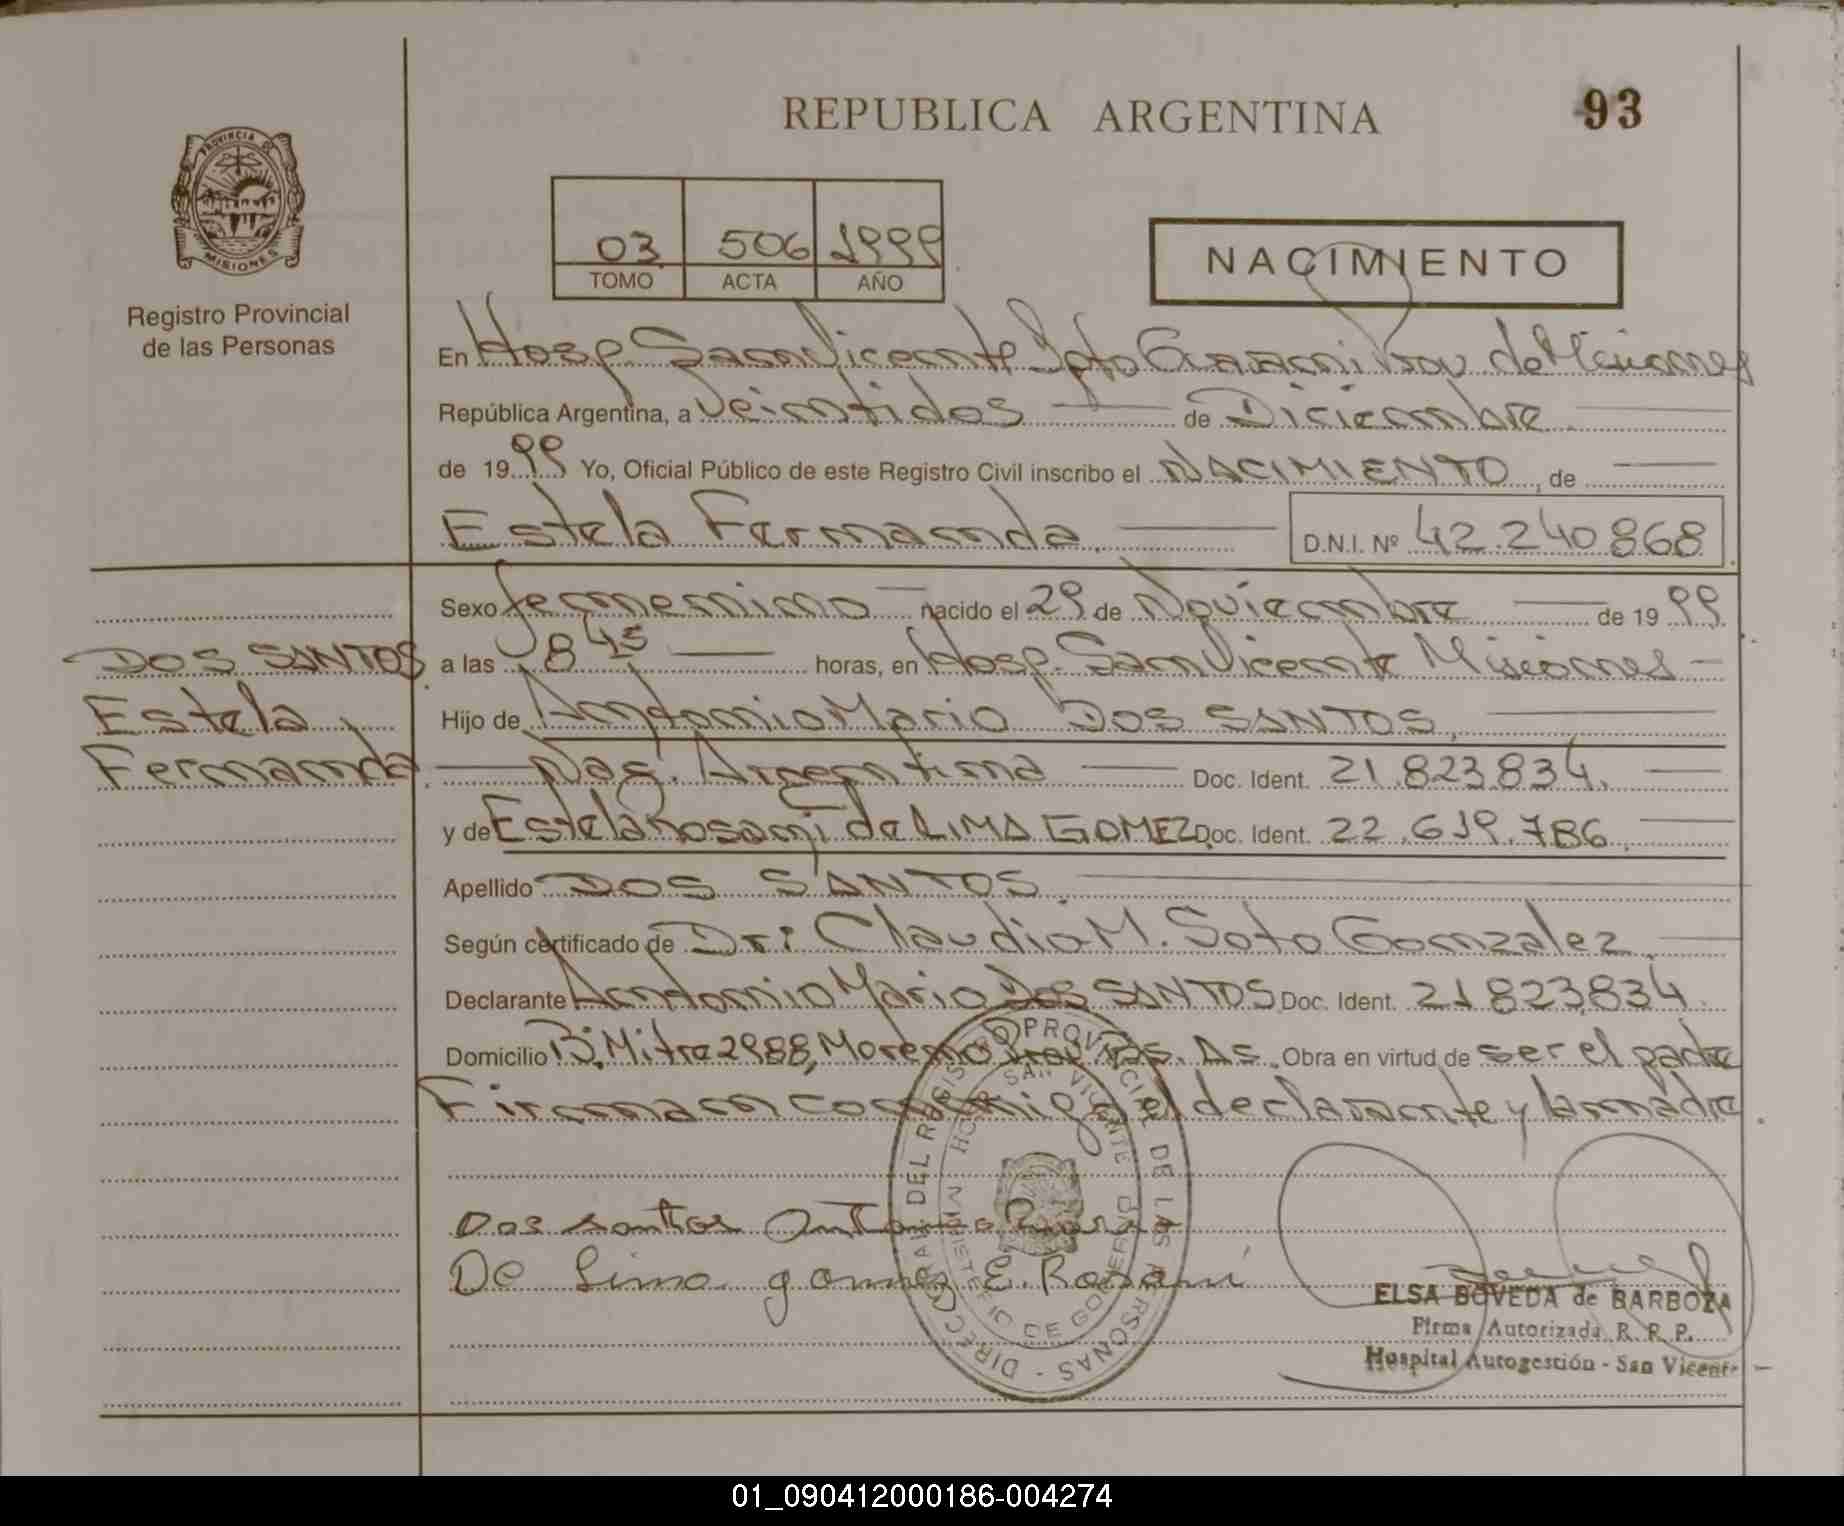 REPUBLICA ARGENTINA
93
PROVINCIA DE
MISIONES
Registro Provincial
de las Personas
03 506 1999
TOMO ACTA AÑO
NACIMIENTO
En Hosp. San Vicente Dpto Guarani Prov de Misiones
República Argentina, a Veintidos de Diciembre
de 1999 Yo, Oficial Público de este Registro Civil inscribo el NACIMIENTO, de
Estela Fernanda D.N.I. Nº 42.240.868
Sexo femenino nacido el 29 de Noviembre de 1999
DOS SANTOS
Estela
Fernanda
a las 8 45 horas, en Hosp. San Vicente Misiones
Hijo de Antonio Mario DOS SANTOS,
Nac. Argentina Doc. Ident. 21.823.834.
y de Estela Rosani de LIMA GOMEZ Doc. Ident. 22.619.786
Apellido DOS SANTOS
Según certificado de Dr: Claudio M. Soto Gonzalez
Declarante Antonio Mario DOS SANTOS Doc. Ident. 21.823.834.
Domicilio B. Mitre 2988, Moreno Prov. Bs. As. Obra en virtud de ser el padre
Firman conmigo el declarante y la madre.
Dos santos Antonio Mario
De Lima gomez E. Rosani
DIRECC GRAL DEL REGISTRO PROVINCIAL DE LAS PERSONAS
SAN VICENTE
MINISTERIO DE GOBIERNO
ELSA BOVEDA de BARBOZA
Firma Autorizada R. P. P.
Hospital Autogestión - San Vicente
01_090412000186-004274